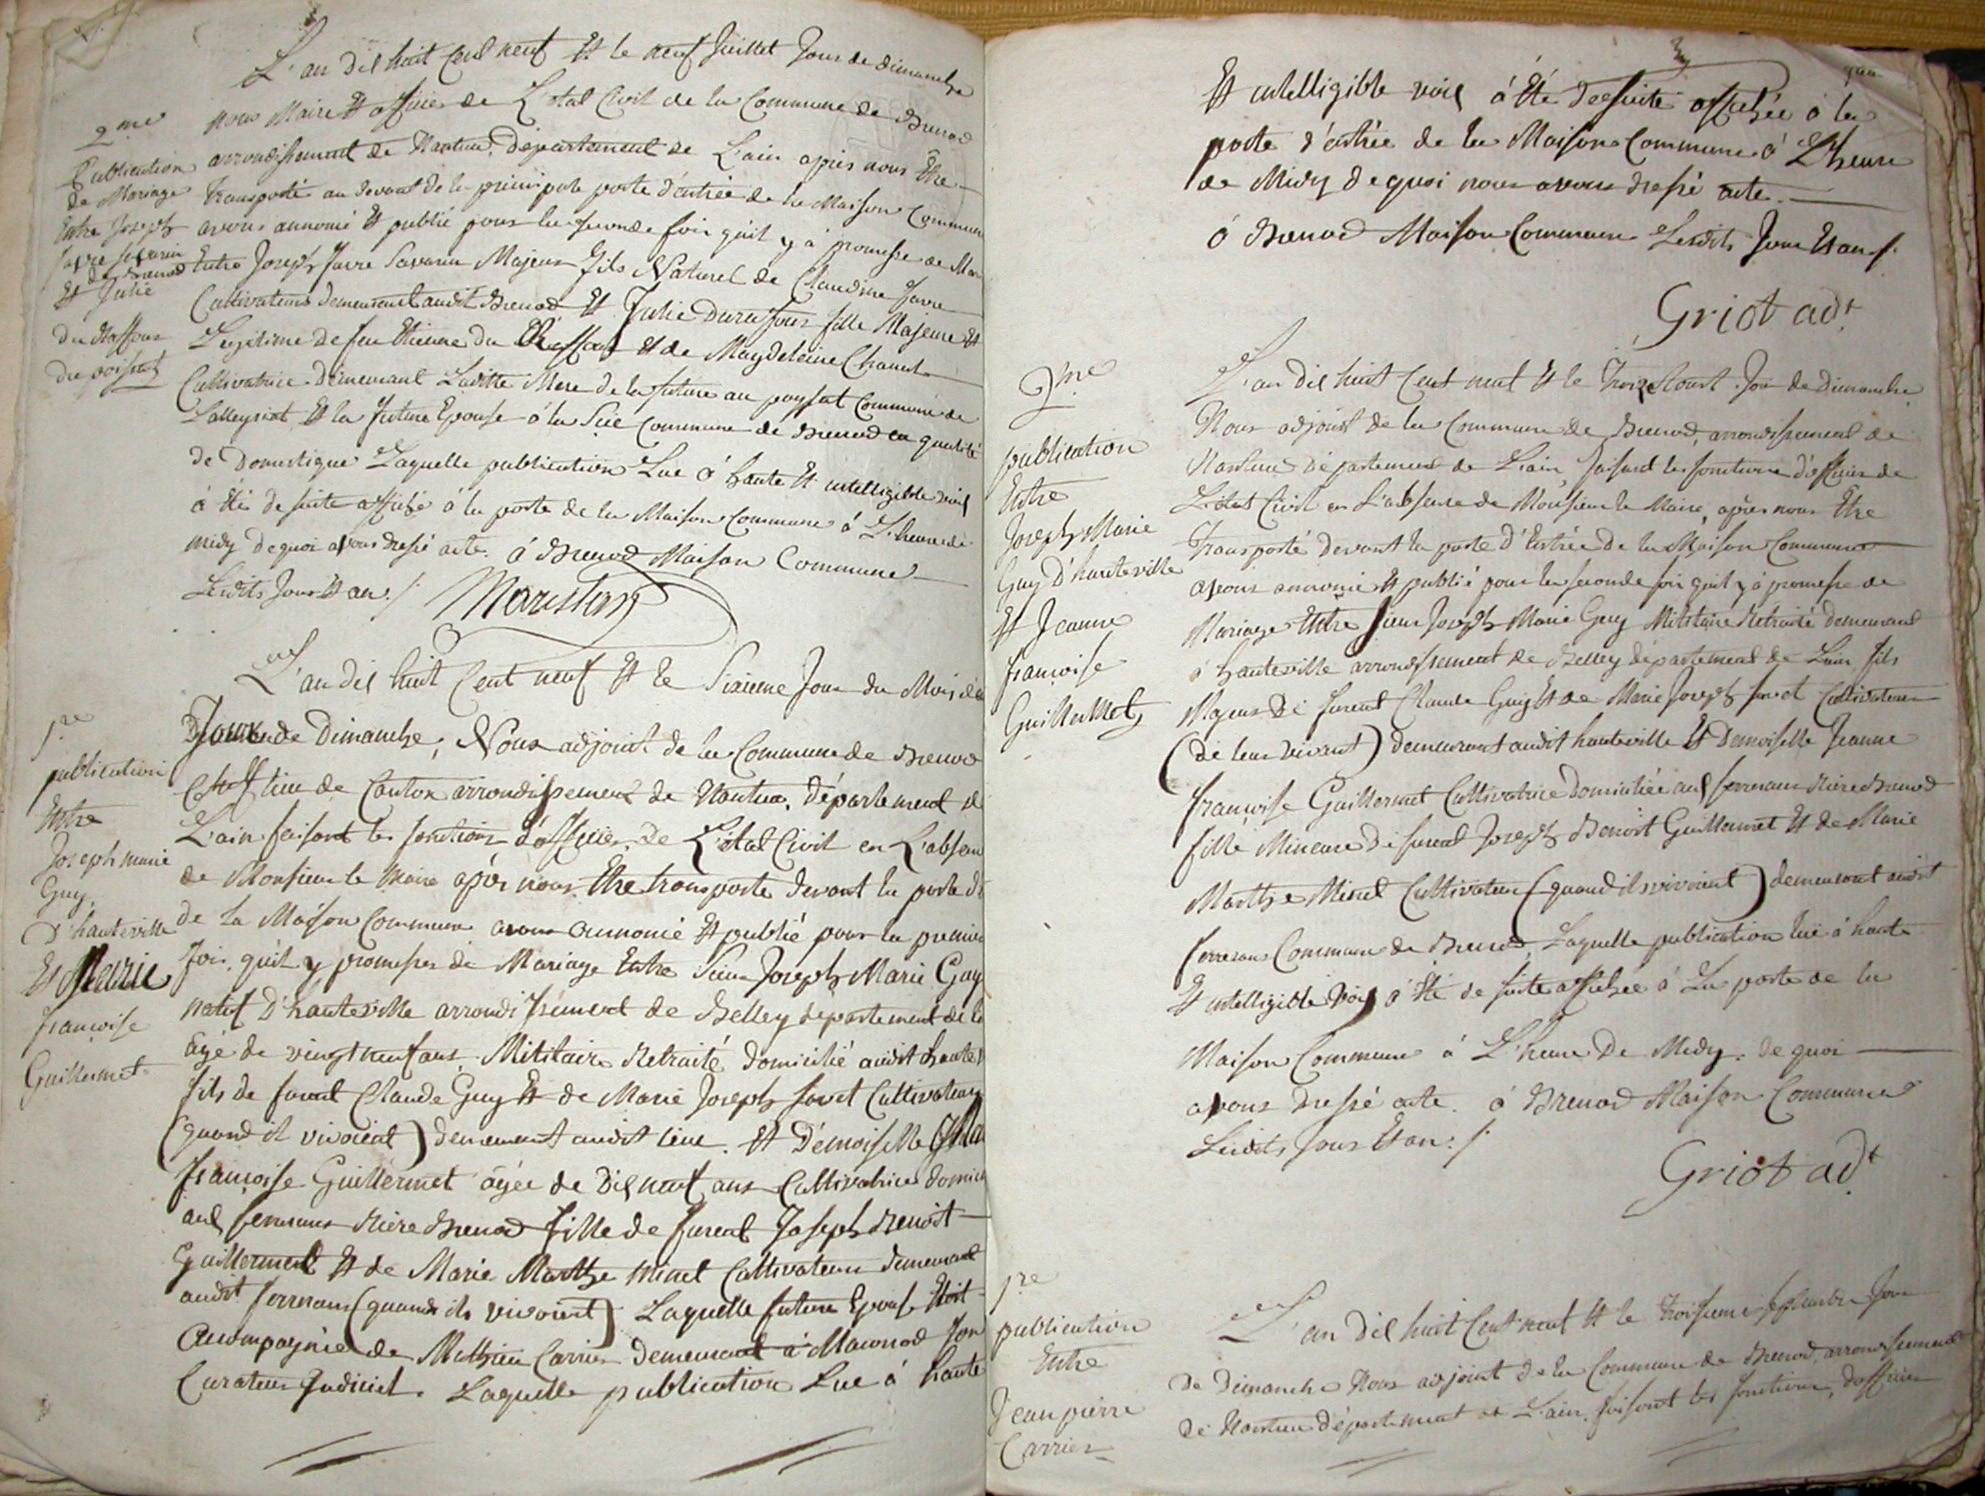 L'an dil huit Cent neuf Et le neuf Juillet Jour de dimanche
nous Maire Et officier de L'Etat Civil de la Commune de Brenod
arrondissement de Nantua, Département de L'ain après nous Etre
transporté au devant de la principale porte d'entrée de la Maison Commune
avons annoncé Et publié pour la seconde fois qu'il y a promesse de Mar
Entre Joseph favre Savarin Majeur fils Naturel de Claudine favre
Cultivateurs demeurant audit Brenod Et Julie
fille Majeure Et
Légitime de feu Etienne du Et de Magdeleine
Cultivatrice demeurant Laditte Mere de la future au Commune de
Lalleyriat Et la future Epouse à la Commune de Brenod en qualité
de Domestique Laquelle publication Lue à haute Et intelligible voix
à Eté de suite affiché à la porte de la Maison Commune à L'heure de
midy de quoi avons dressé acte. à Brenod Maison Commune
Lesdits Jour Et an ./.
2me
Publication
de Mariage
Entre Joseph
favre Savarin
de Brenod
Et Julie
L'an dil huit Cent neuf Et le Sixieme Jour du Mois
Jour de Dimanche, Nous adjoint de la Commune de Brenod
Chef lieu de Canton arrondissement de Nantua, département de
L'ain faisant les fonctions d'officier de L'état Civil en L'absen
de Monsieur le Maire après nous Etre transporté devant la porte d'
de la Maison Commune avons annoncé Et publié pour la premier
fois, qu'il y promesses de Mariage Entre Sieur Joseph Marie Guy
natif D'hauteville arrondissement de Belley département de l
âgé de vingt neuf ans Militaire Retraité domicilié audit haute
fils de Claude Guy Et de Marie Joseph Cultivateurs
(quand il vivoient) demeurant audit lieu. Et Démoiselle
françoise Guillermet âgée de Dil neuf ans Cultivatrice domici
aux ferrans Rière Brenod fille de Joseph Benoit
Guillermet Et de Marie Marthe Minet Cultivateurs demeurant
audit ferrans (quand ils vivoient) Laquelle future Epouse Etoit
Accompagnée de Mathieu Carrier demeurant à Maconod Son
Curateur Judiciel. Laquelle publication Lue à haute
1re
publication
Entre
Joseph marie
Guy
D'hauteville
Et
françoise
Guillermet
Et intelligible voix à Eté De suite affichée à la
porte d'entrée de la Maison Commune à L'heure
de Midy De quoi nous avons dressé acte.
à Brenod Maison Commune Lesdits Jour Et an ./.
Griot adt
2me
publication
Entre
Joseph Marie
Guy D'hauteville
Et Jeanne
françoise
Guillermet
L'an dil huit Cent neuf Et le Treize Jour de Dimanche
Nous adjoint de la Commune de Brenod, arrondissement de
Nantua département de L'ain, faisant les fonctions d'officier de
L'état Civil en L'absence de Monsieur le Maire, après nous Etre
Transporté devant la porte d'Entrée de la Maison Commune
avons annoncé Et publié pour la seconde fois qu'il y à promesse de
Mariage Entre Sieur Joseph Marie Guy Militaire Retraité demeurant
à hauteville arrondissement de Belley département de L'ain fils
Majeur De Claude Guy Et de Marie Joseph Cultivateurs
(de leur vivant) demeurant audit hauteville Et Demoiselle Jeanne
françoise Guillermet Cultivatrice domiciliée aux ferrans Rière Brenod
fille Mineure De Joseph Benoit Guillermet Et de Marie
Marthe Minet Cultivateurs (quand ils vivoient) demeurant audit
ferrans Commune de Brenod, Laquelle publication lue à haute
Et intelligible Voix à Eté de suite affichée à La porte de la
Maison Commune à L'heure De Midy. De quoi
avons dressé acte. à Brenod Maison Commune
Lesdits Jour Et an ./.
Griot adt
1re
publication
Entre
Jean pierre
Carrier
L'an dil huit Cent neuf Et le troisieme septembre Jour
De Dimanche Nous adjoint de la Commune de Brenod, arrondissement
De Nantua département de L'ain, faisant les fonctions, d'officier